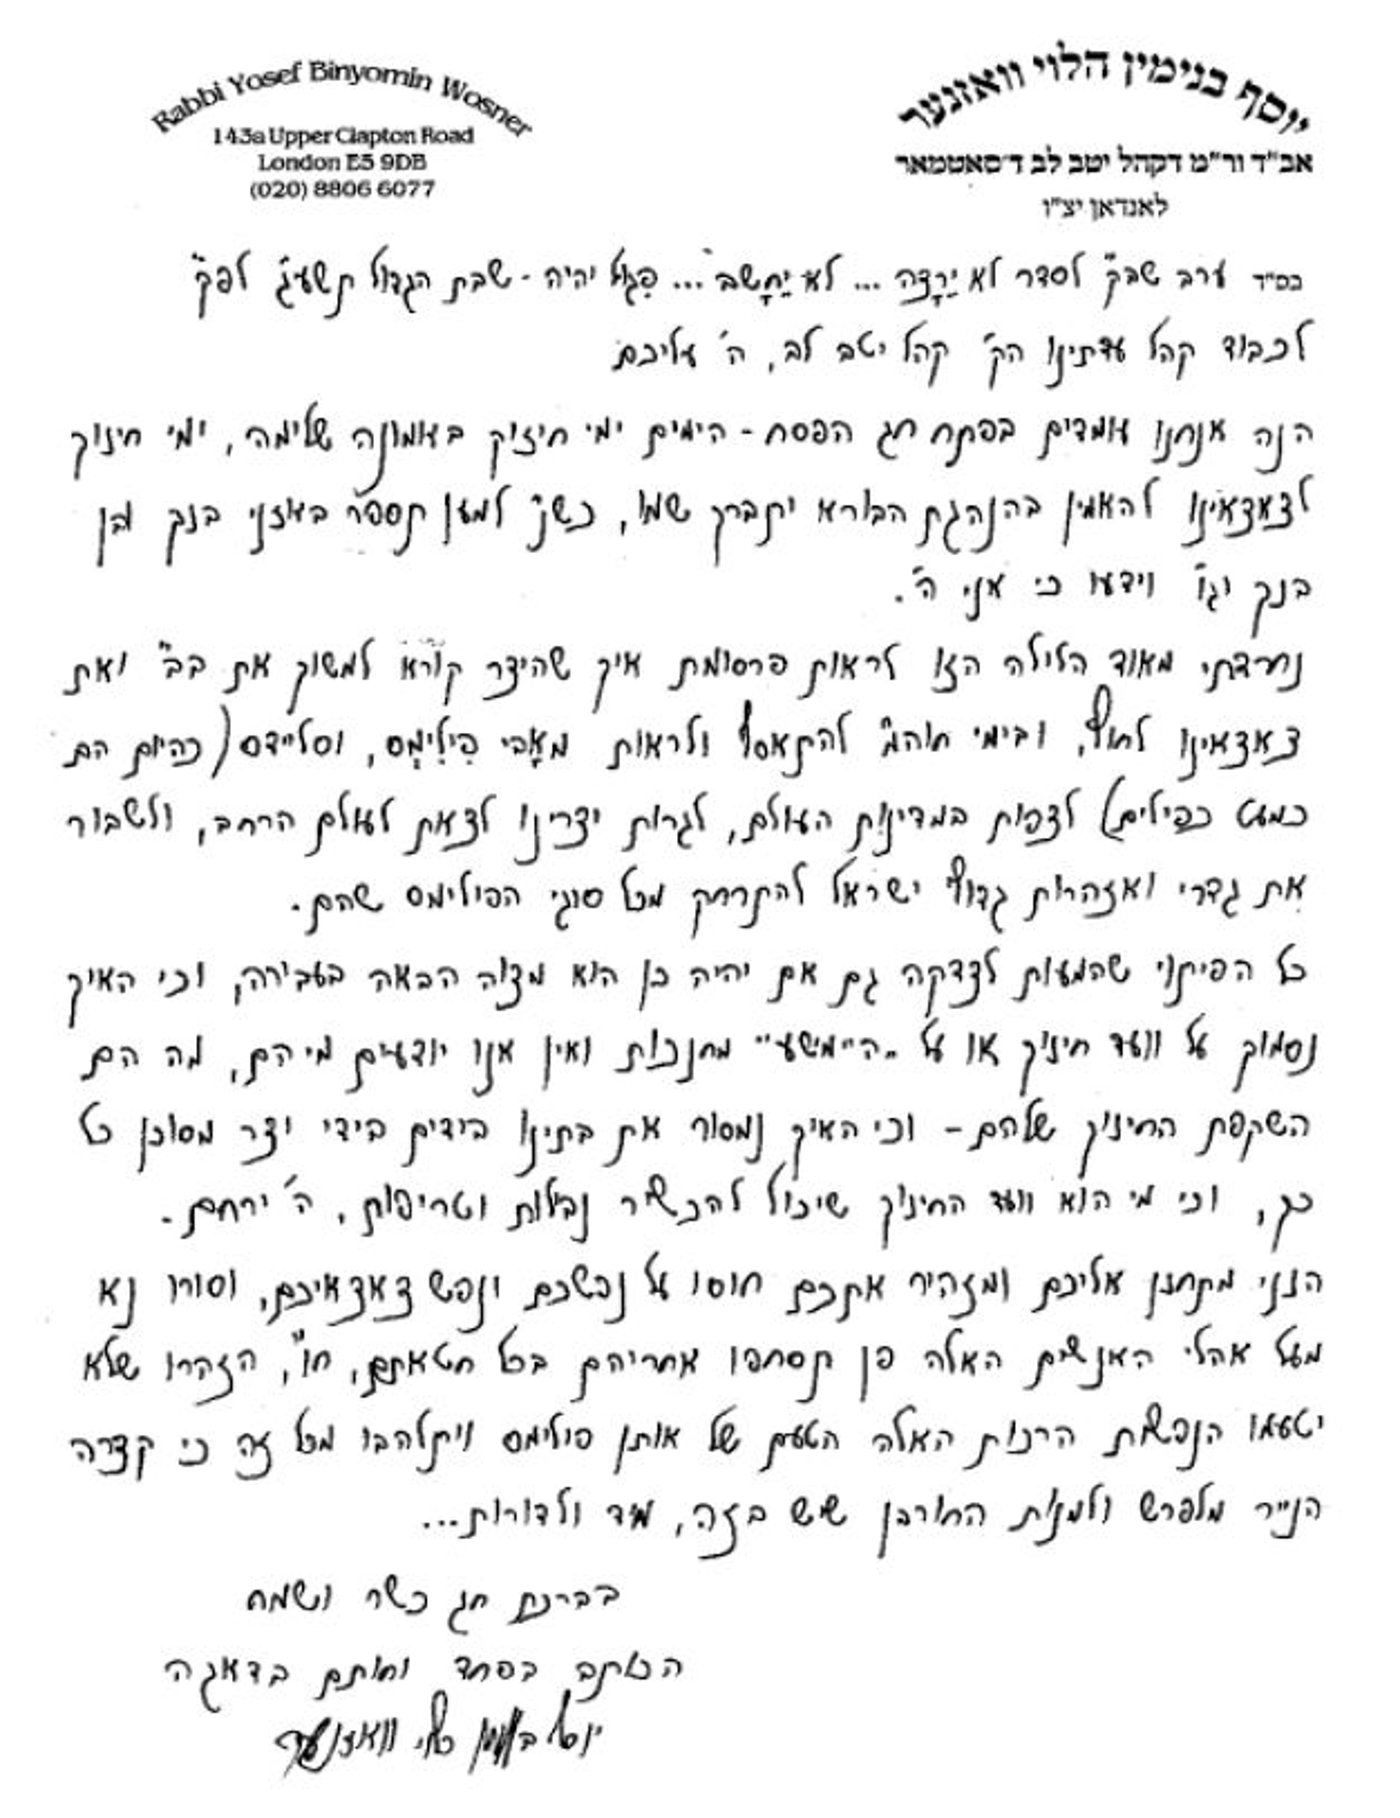 Rabbi Yosef Binyomin Wosner
143a Upper Clapton Road
London E5 9DB
(020) 8806 6077
יוסף בנימין הלוי וואזנער
אב"ד ור"מ דקהל יטב לב ד'סאטמאר
לאנדאן יצ"ו
בס"ד ערב שבק' לסדר לא יֵרָצֶה ... לא יֵחָשֵב ... פִגול יהיה - שבת הגדול תשע"ג לפ"ק
לכבוד קהל עדתינו הק' קהל יטב לב, ה' עליכם
הנה אנחנו עומדים בפתח חג הפסח - הימים ימי חיזוק באמונה שלימה, ימי חינוך
לצאצאינו להאמין בהנהגת הבורא יתברך שמו, כשנ' למען תספר באזני בנך ובן
בנך וגו' וידעו כי אני ה'.
נחרדתי מאוד הלילה הזו לראות פרסומת איך שהיצר קורא למשוך את בב' ואת
צאצאינו לחוץ, ובימי חוהמ' להתאסף ולראות מאָבי פִילִימְס, וסליידס (כהיום הם
כמעט כפילים) לצפות במדינות העולם, לגרות יצרינו לצאת לעולם הרחב, ולשבור
את גדרי ואזהרות גדולי ישראל להתרחק מכל סוגי הפילימס שהם.
כל הפיתוי שהמעות לצדקה גם אם יהיה כן הוא מצוה הבאה בעבירה, וכי האיך
נסמוך על וועד חינוך או על "היימישע" מחנכות ואין אנו יודעים מי הם, מה הם
השקפת החינוך שלהם - וכי האיך נמסור את בתינו בידים בידי יצר מסוכן כל
כך, וכי מי הוא וועד החינוך שיכול להכשיר נבילות וטריפות, ה' ירחם.
הנני מתחנן אליכם ומזהיר אתכם חוסו על נפשכם ונפש צאצאיכם, וסורו נא
מעל אהלי האנשים האלה פן תסחפו אחריהם בכל חטאתם, חו', הזהרו שלא
יטעמו הנפשות הרכות האלה הטעם של אותן פילימס ויתלהבו מכל זה כי קצרה
הנייר מלפרש ולמנות החורבן שיש בזה, מיד ולדורות...
בברכת חג כשר ושמח
הכותב בפחד וחותם בדאגה
יוסף בנימין הלוי וואזנער